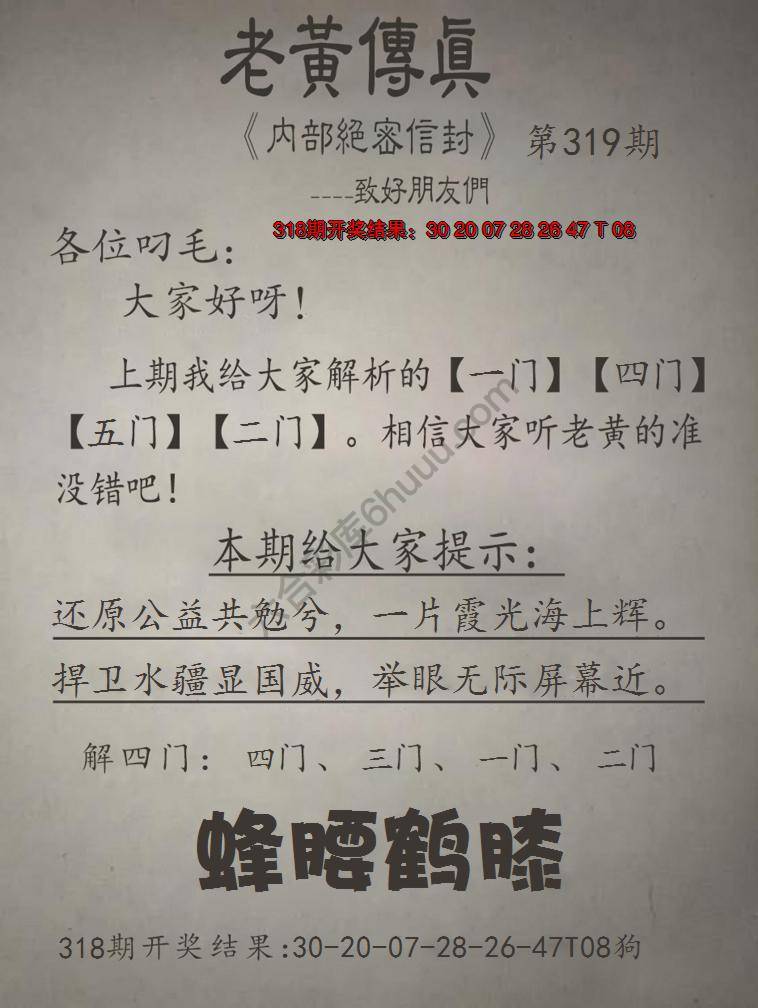 老黃傳眞
《内部絕密信封》 第319期
----致好朋友們
318期开奖结果：30 20 07 28 26 47 T 08
各位叼毛：
大家好呀！
上期我给大家解析的【一门】【四门】
【五门】【二门】。相信大家听老黄的准
没错吧！
本期给大家提示：
还原公益共勉兮，一片霞光海上辉。
捍卫水疆显国威，举眼无际屏幕近。
解四门： 四门、三门、一门、二门
蜂腰鹤膝
318期开奖结果:30-20-07-28-26-47T08狗
六合彩库6huuu.com